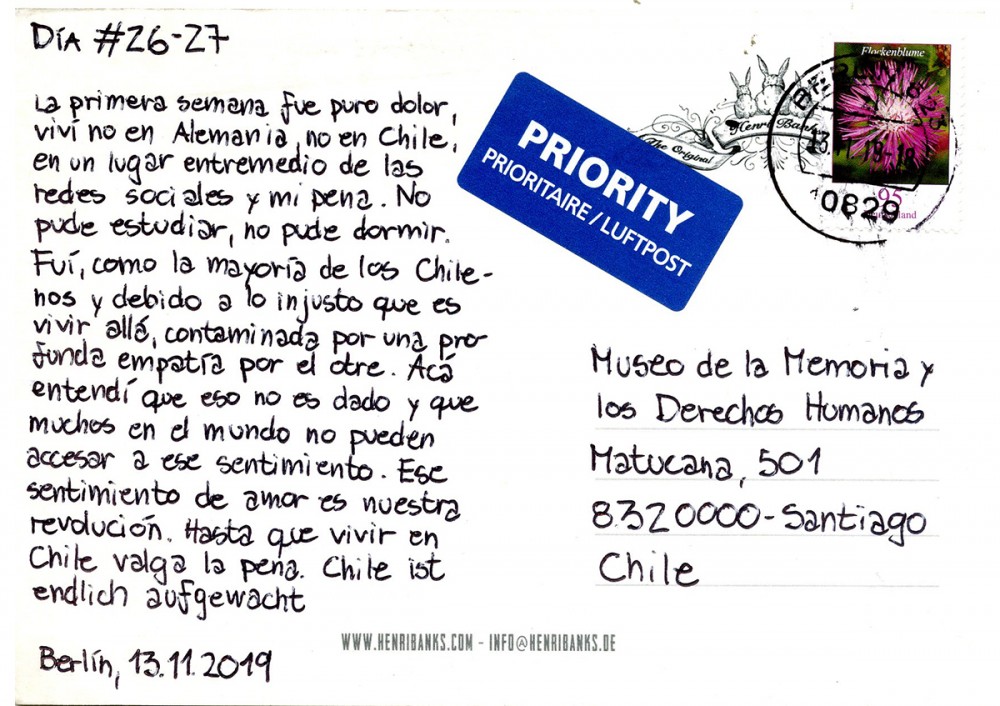 DÍA #26-27
La primera semana fue puro dolor,
viví no en Alemania, no en Chile,
en un lugar entremedio de las
redes sociales y mi pena. No
pude estudiar, no pude dormir.
Fuí, como la mayoría de los Chile-
nos y debido a lo injusto que es
vivir allá, contaminada por una pro-
funda empatía por el otre. Acá
entendí que eso no es dado y que
muchos en el mundo no pueden
accesar a ese sentimiento. Ese
sentimiento de amor es nuestra
revolución. Hasta que vivir en
Chile valga la pena. Chile ist
endlich aufgewacht
Berlín, 13.11.2019
PRIORITY
PRIORITAIRE / LUFTPOST
The Original
Henri Banks
Flockenblume
95
0829
Museo de la Memoria y
los Derechos Humanos
Matucana, 501
8320000-Santiago
Chile
WWW.HENRIBANKS.COM - INFO@HENRIBANKS.DE